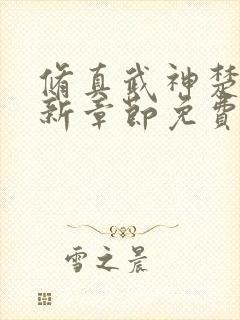 脩真武神楚
新章節免費
雪之晨